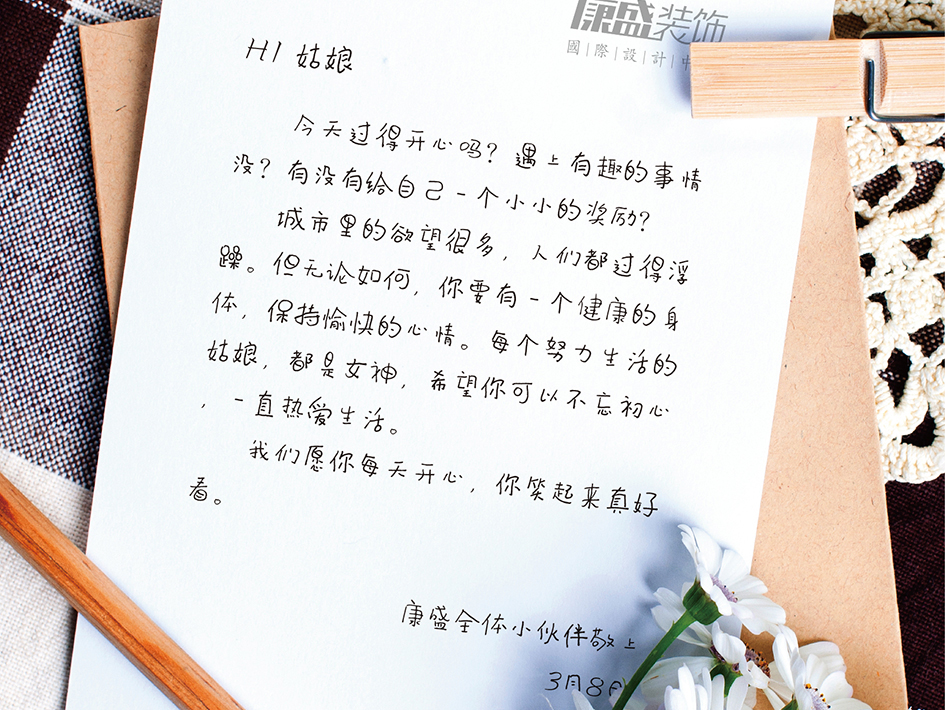 康盛装饰
國|際|設|計|中
HI 姑娘
今天过得开心吗？遇上有趣的事情
没？有没有给自己一个小小的奖励？
城市里的欲望很多，人们都过得浮
躁。但无论如何，你要有一个健康的身
体，保持愉快的心情。每个努力生活的
姑娘，都是女神，希望你可以不忘初心
，一直热爱生活。
我们愿你每天开心，你笑起来真好
看。
康盛全体小伙伴敬上
3月8日